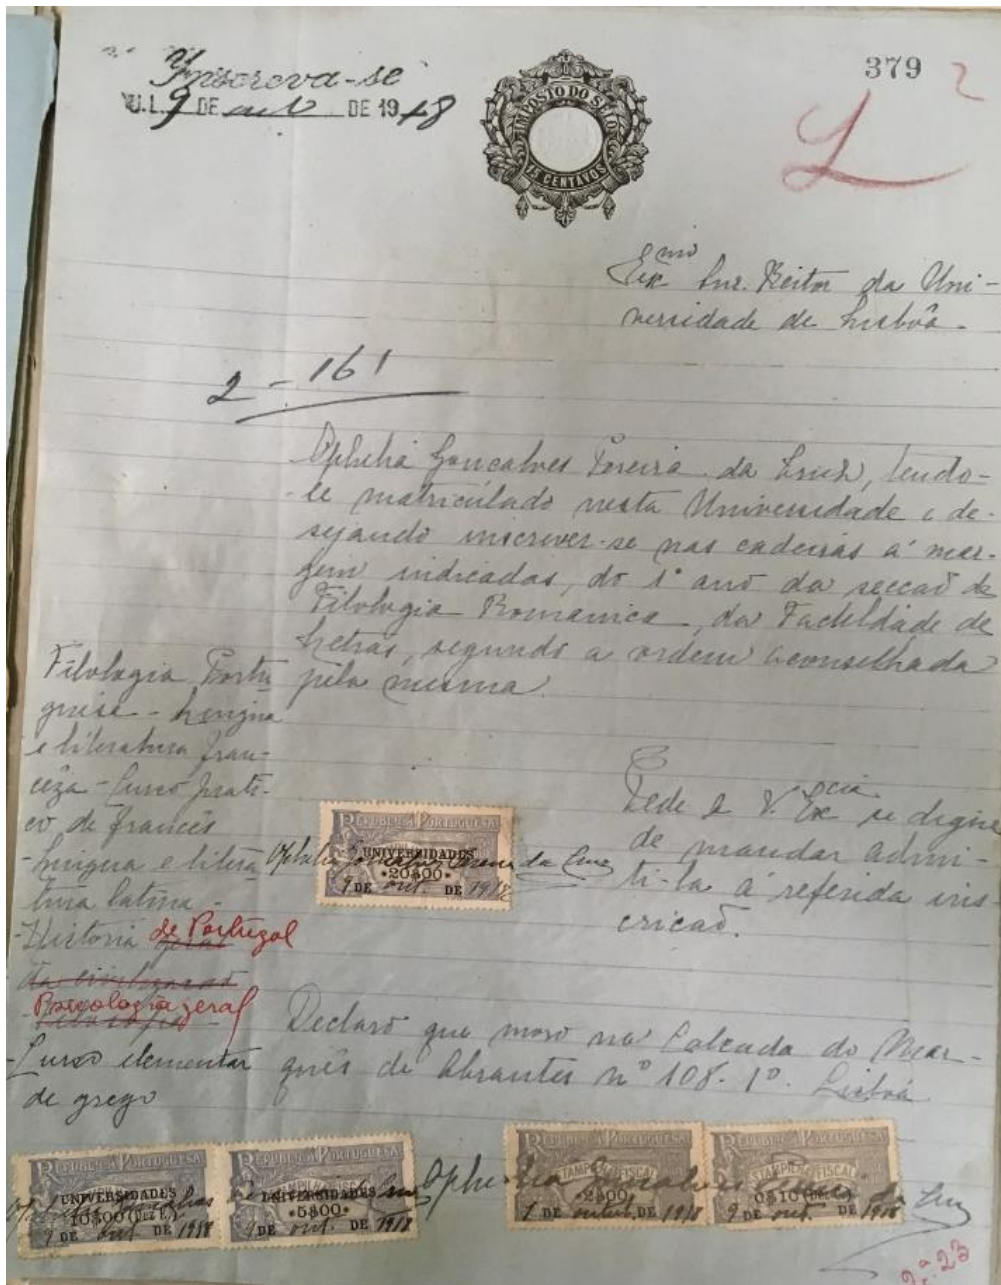 Inscreva-se
U.L. 9 DE out. DE 1918
IMPOSTO DO SELO
15 CENTAVOS
379
L
2
Exmo Snr. Reitor da Uni-
versidade de Lisbôa.
2-161
Ophelia Gonçalves Pereira da Cruz, tendo-
se matriculado nesta Universidade e de-
sejando inscrever-se nas cadeiras á mar-
gem indicadas, do 1º ano da secção de
Filologia Romanica, da Faculdade de
Letras, segundo a ordem aconselhada
pela mesma.
Filologia Portu
guêsa - Lingua
e literatura fran-
cêza - Curso prati-
co de francês
- Lingua e litera
tura latina -
- Historia geral de Portugal
da civilização
- Filosofia - Psicologia geral
- Curso elementar
de grego
E
Pede a V. Excia se digne
de mandar admi-
ti-la á referida ins-
crição.
REPUBLICA PORTUGUESA
UNIVERSIDADES
•20$00•
9 DE out. DE 1918
Ophelia Gonçalves Pereira da Cruz
Declaro que moro na Calçada do Mar-
quês de Abrantes nº 108-1º. Lisboa
REPUBLICA PORTUGUESA
UNIVERSIDADES
10$00 (DEZ E.)
9 DE out. DE 1918
REPUBLICA PORTUGUESA
UNIVERSIDADES
•5$00•
9 DE out. DE 1918
REPUBLICA PORTUGUESA
ESTAMPILHA FISCAL
•2$00•
9 DE outub. DE 1918
REPUBLICA PORTUGUESA
ESTAMPILHA FISCAL
9 DE out. DE 1918
Ophelia Gonçalves Pereira da Cruz
23